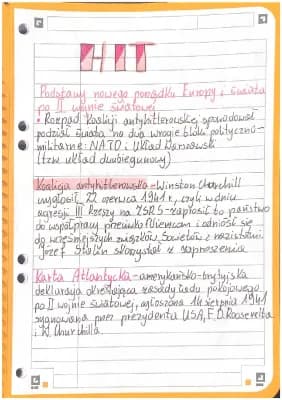 HIT
Podstawy nowego porządku Europy i świata
po II wojnie światowej
• Rozpad koalicji antyhitlerowskiej spowodował
podział świata na dwa wrogie bloki polityczno-
militarne: NATO i Układ Warszawski
(tzw. układ dwubiegunowy)
Koalicja antyhitlerowska - Winston Churchill
wygłosił 22 czerwca 1941 r., czyli w dniu
agresji III Rzeszy na ZSRS - zaprosił to państwo
do współpracy przeciwko Niemcom i odniósł się
do wcześniejszych związków Sowietów z nazistami.
Józef Stalin skorzystał z zaproszenia
Karta Atlantycka - amerykańsko-brytyjska
deklaracja określająca zasady ładu pokojowego
po II wojnie światowej, ogłoszona 14 sierpnia 1941
sygnowana przez prezydenta USA, F.D. Roosevelta
i W. Churchilla.